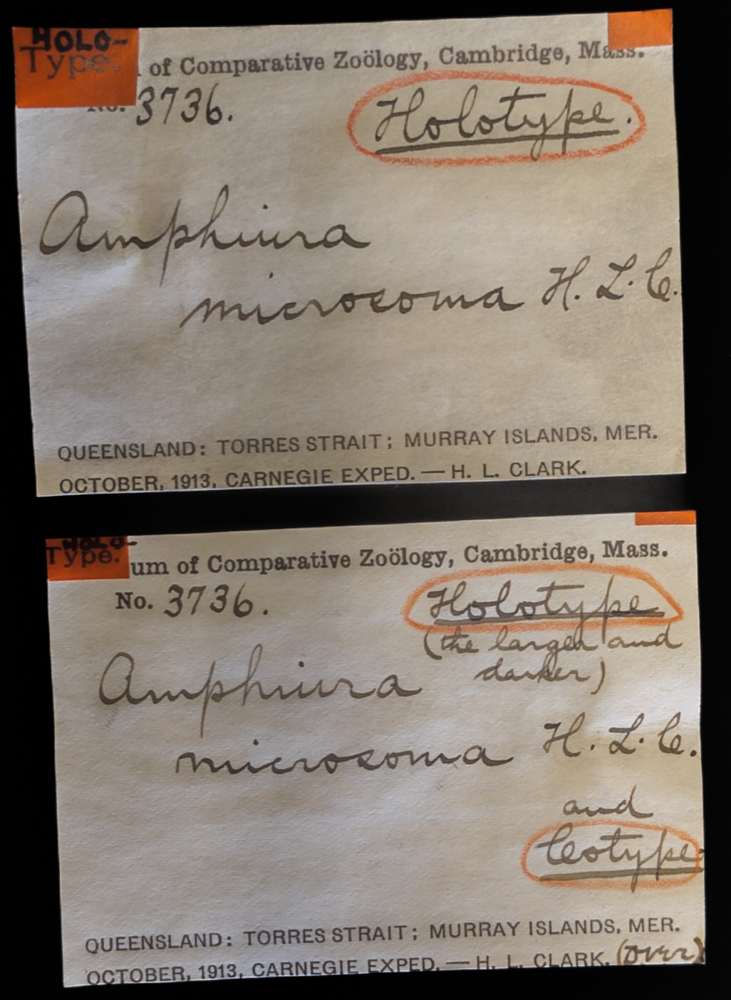 HOLO-
Type.
of Comparative Zoölogy, Cambridge, Mass.
No. 3736.
Holotype.
Amphiura
microsoma H. L. C.
QUEENSLAND: TORRES STRAIT; MURRAY ISLANDS, MER.
OCTOBER, 1913, CARNEGIE EXPED. — H. L. CLARK.
HOLO-
Type.
um of Comparative Zoölogy, Cambridge, Mass.
No. 3736.
Holotype
(the larger and
darker)
Amphiura
microsoma H. L. C.
and
Cotype
QUEENSLAND: TORRES STRAIT; MURRAY ISLANDS, MER.
OCTOBER, 1913, CARNEGIE EXPED. — H. L. CLARK. (over)